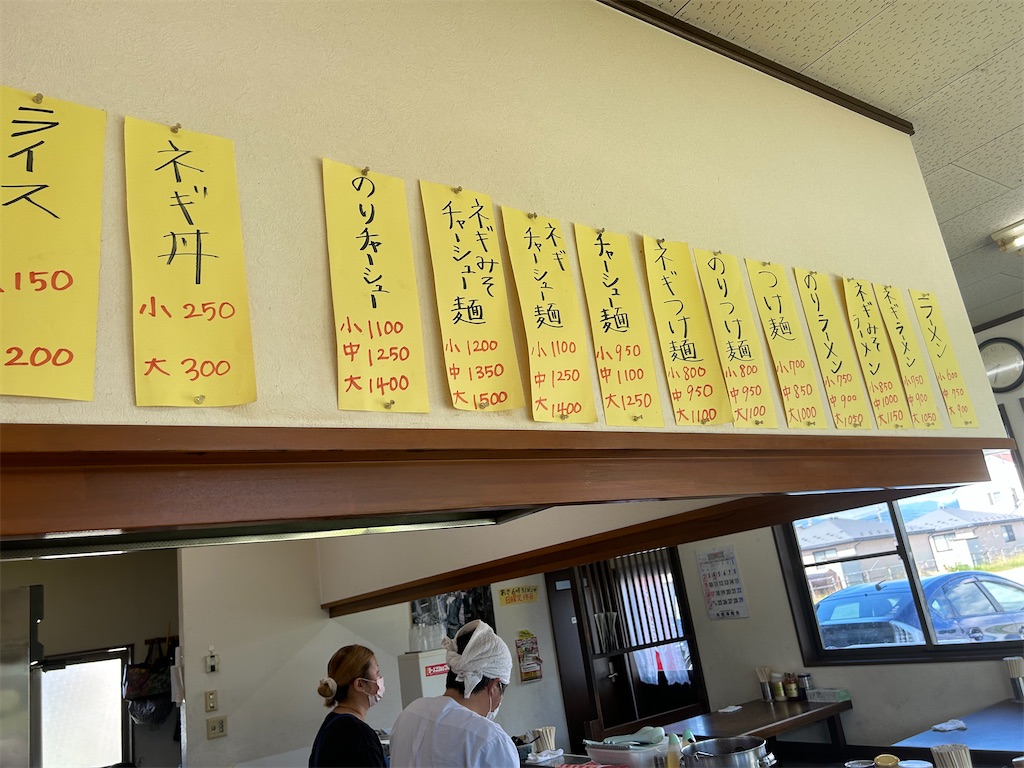 ライス
150
200
ネギ丼
小250
大300
のりチャーシュー
小1100
中1250
大1400
ネギみそ
チャーシュー麺
小1200
中1350
大1500
ネギ
チャーシュー麺
小1100
中1250
大1400
チャーシュー麺
小950
中1100
大1250
ネギつけ麺
小800
中950
大1100
のりつけ麺
小800
中950
大1100
つけ麺
小700
中850
大1000
のりラーメン
小750
中900
大1050
ネギみそ
ラーメン
小850
中1000
大1150
ネギラーメン
小750
中900
大1050
ラーメン
小600
中750
大900